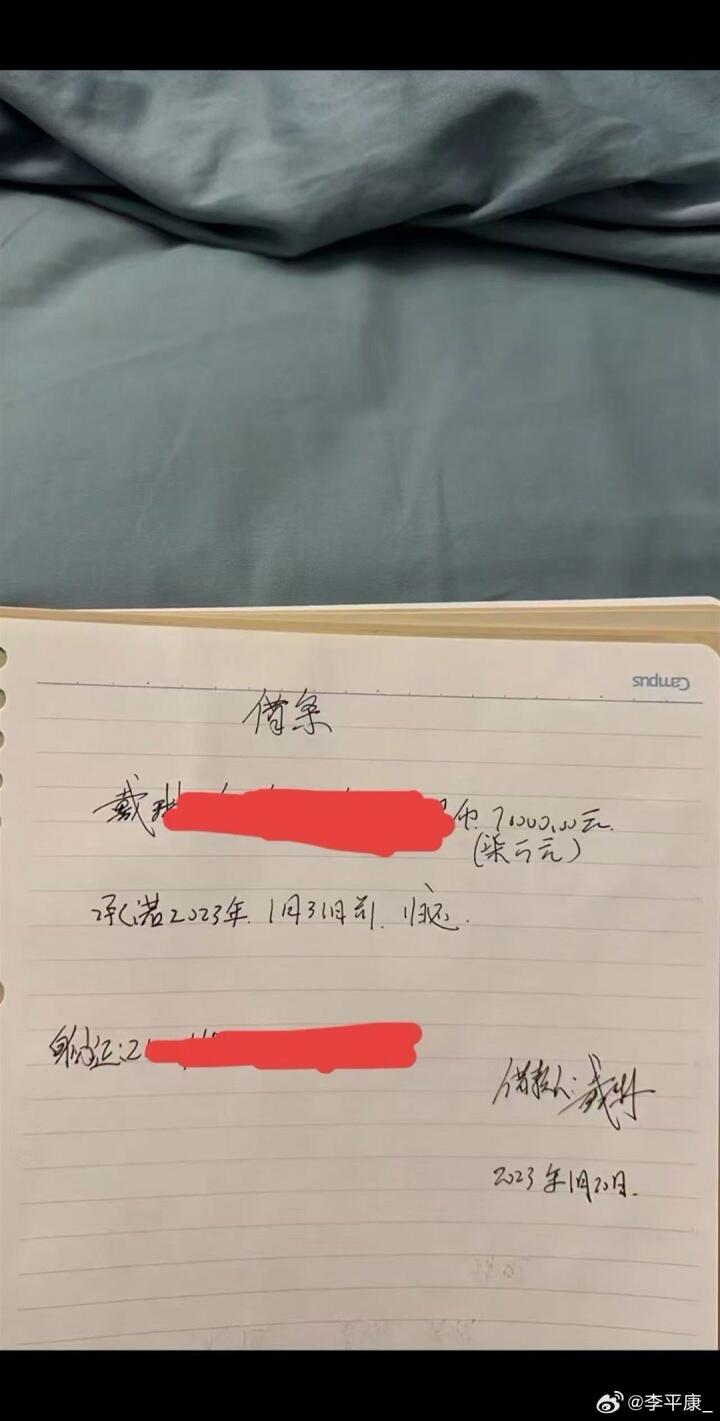 Campus
借条
戴 币 70000.00元.
(柒万元)
承诺2023年.1月31日前.归还.
身份证:
借款人:戴琳
2023年1月20日.
@李平康_